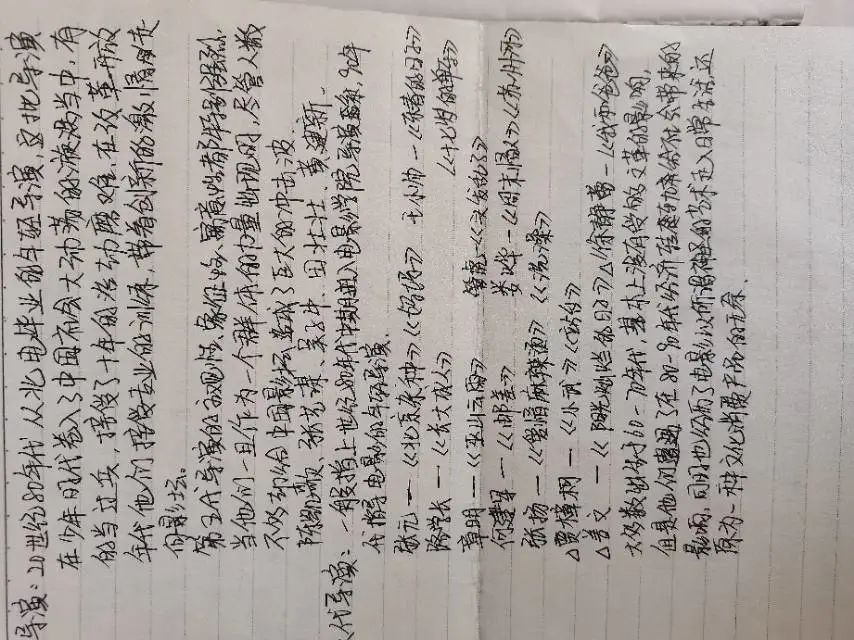 导演：20世纪80年代从北电毕业的年轻导演，这批导演
在少年时代卷入了中国社会大动荡的漩涡当中，有
的当过兵，接受了十年的浩劫磨难。在改革开放
年代他们接受专业的训练，带着创新的激情走
向影坛。
第五代导演的主观性、象征性、寓意性都特别强烈，
当他们一旦作为一个群体的力量出现时，尽管人数
不多却给中国影坛造成了巨大的冲击波
陈凯歌、张艺谋、吴子牛、田壮壮、黄建新、
代导演：一般指上世纪80年代中期进入电影学院导演系，90年
代指导电影的年轻导演。
张元 — 《北京杂种》《妈妈》 王小帅 — 《冬春的日子》
路学长 — 《长大成人》 《十七岁的单车》
章明 — 《巫山云雨》 管虎《头发乱了》
何建军 — 《邮差》 娄烨 — 《周末情人》《苏州河》
张扬 — 《爱情麻辣烫》《洗澡》
△贾樟柯 — 《小武》《站台》
△姜文 — 《阳光灿烂的日子》△徐静蕾 — 《我和爸爸》
大多数出生于60-70年代，基本上没有受的文革的影响，
但是他们遭遇了在80-90年代经济转轨的给社会带来的
影响，同时也公布了电影以所谓神圣的艺术走入日常生活，还
原为一种文化消费产品的无奈．